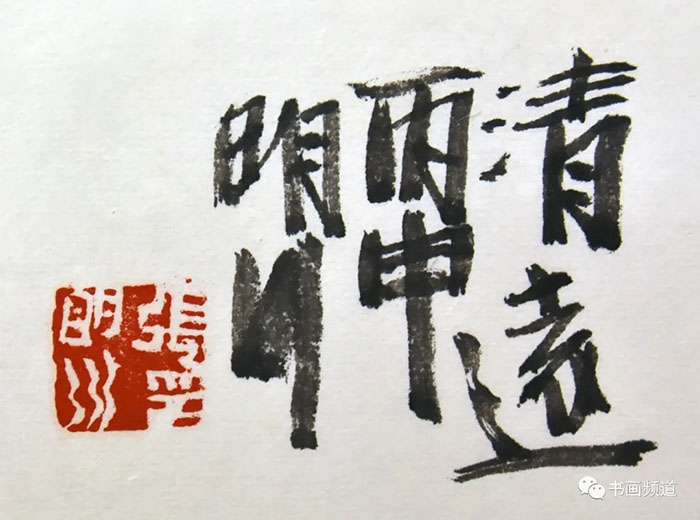 清遠
丙申
明川
張
明川
书画频道